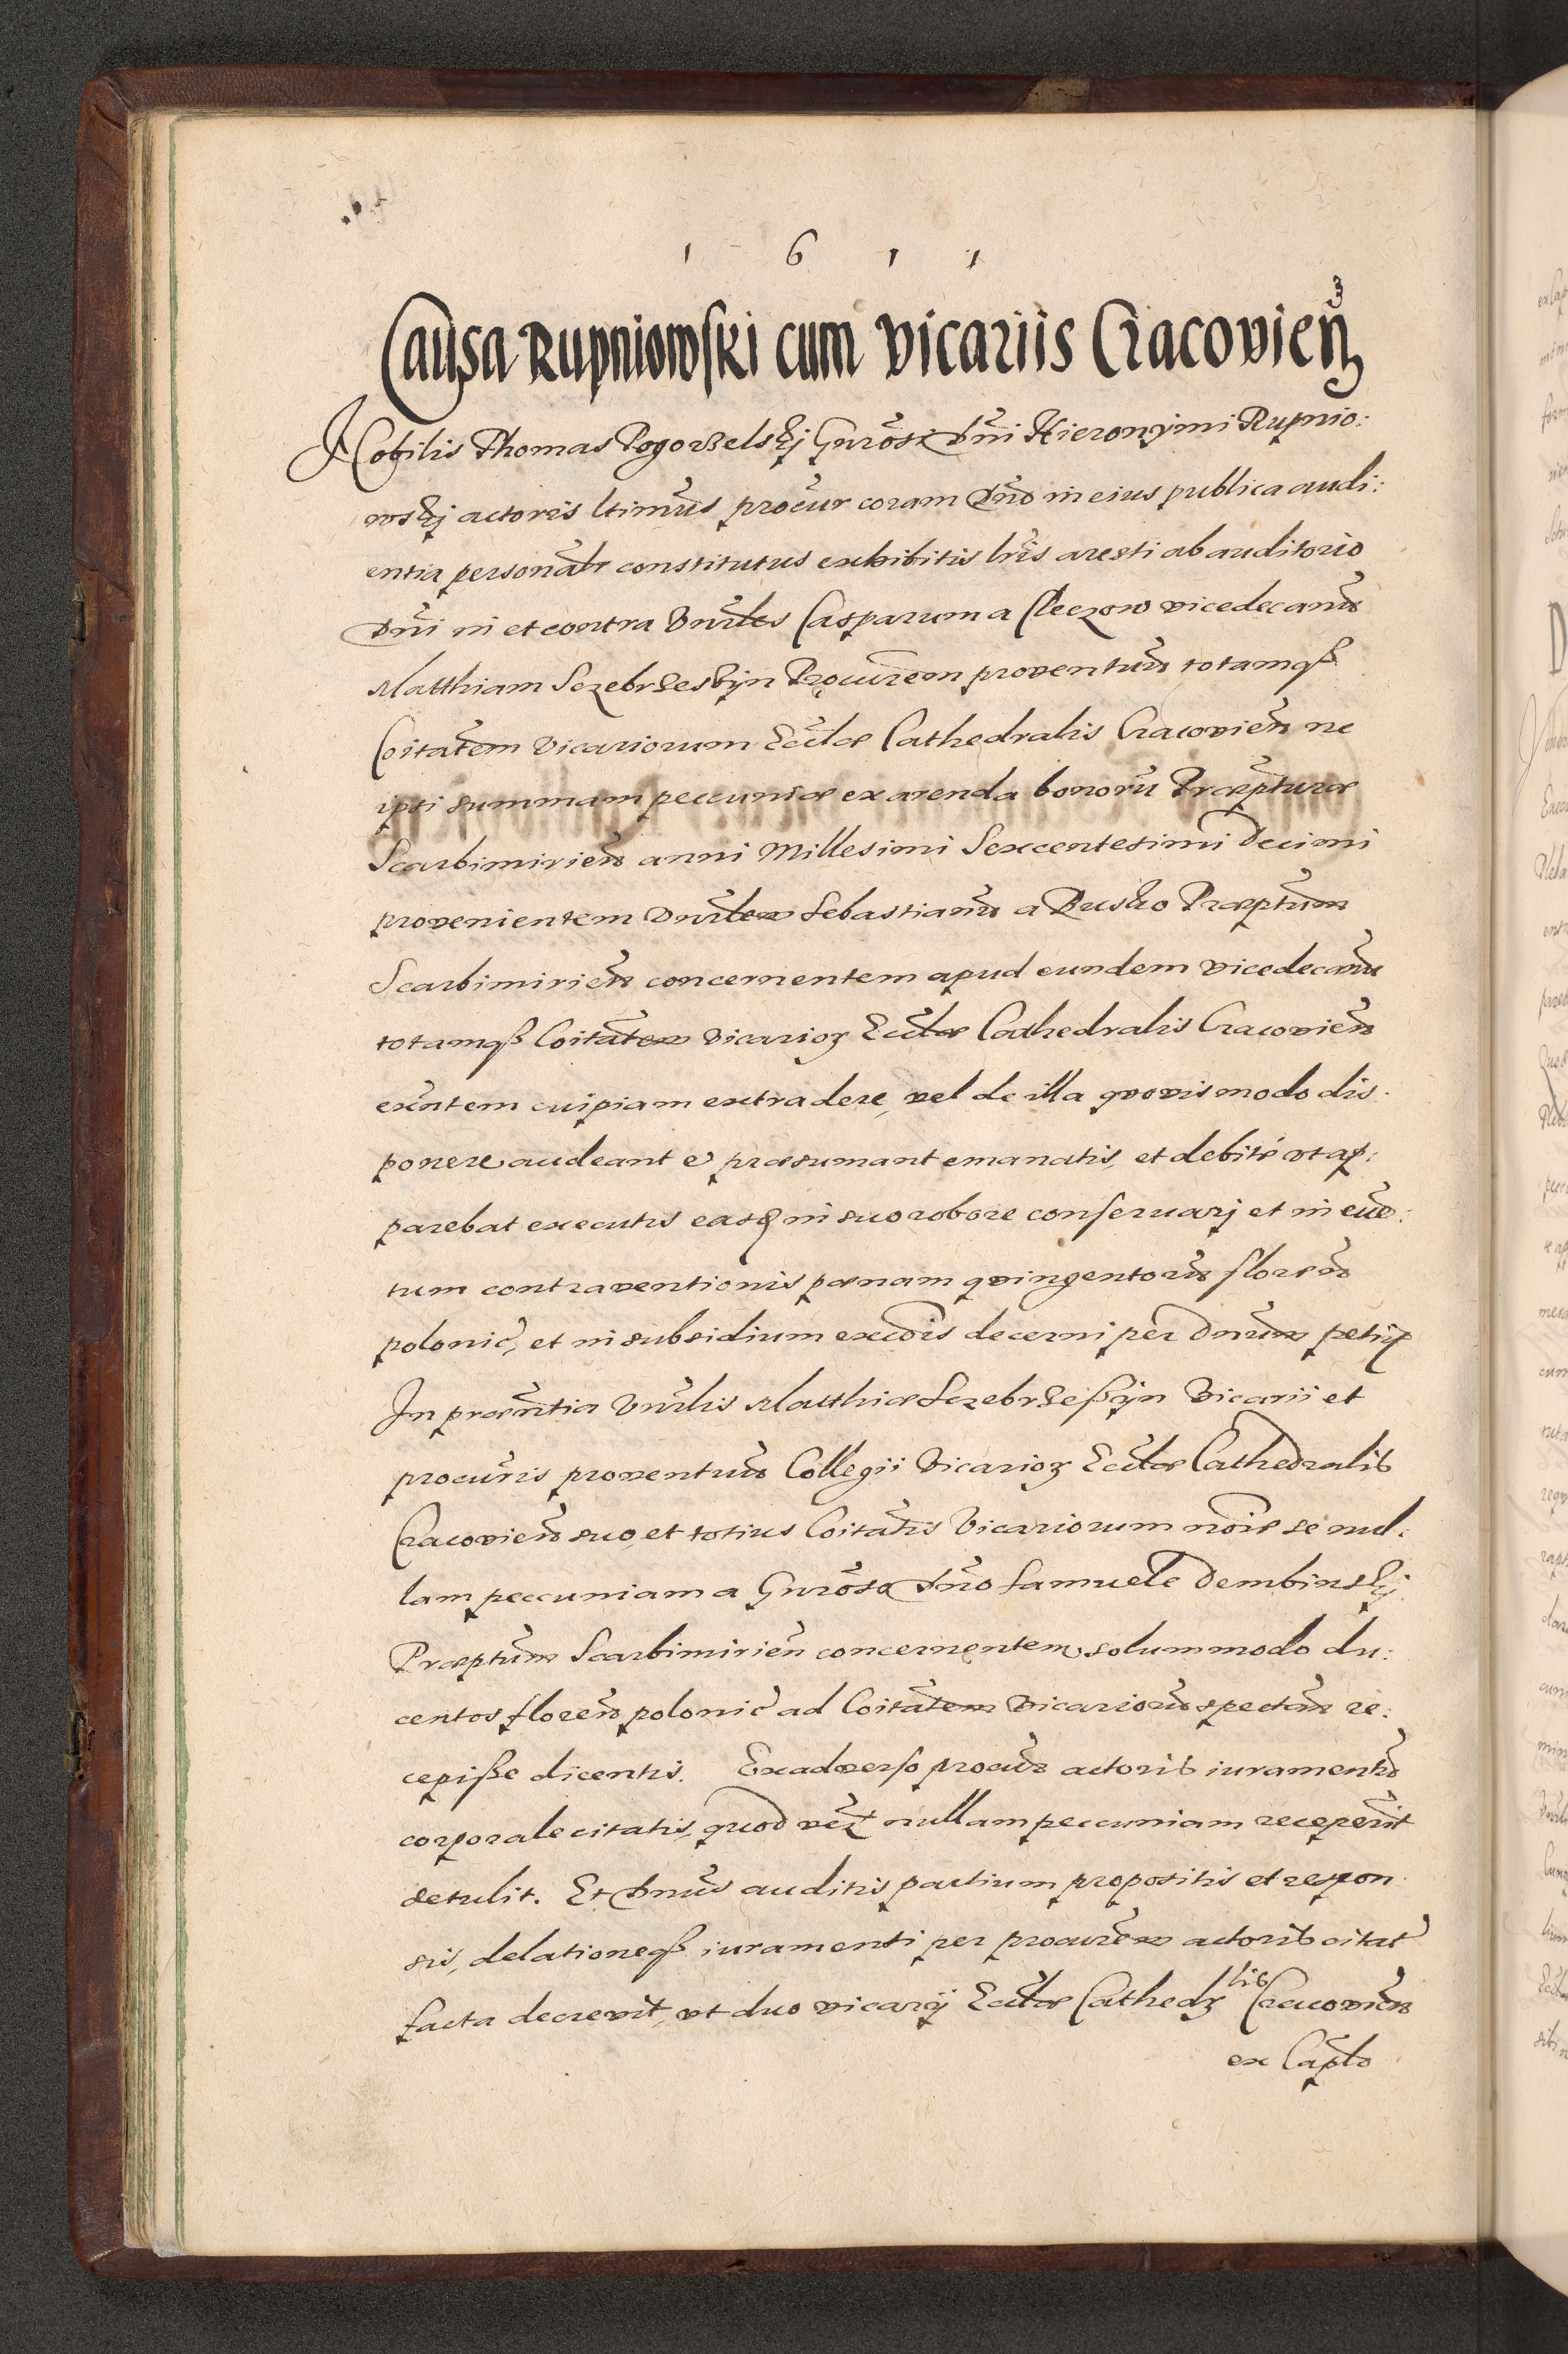 1 6 1 1
Causa Rupniowski cum vicariis Cracovien̄
Nobilis Thomas Pogorzelskj Gnrōsi Dn̄i Hieronymi Rupnio:
wskj actoris ltimūs procūr coram Dn̄o in eius publica audi:
entia personalr̄ constitutus exhibitis lrīs aresti ab auditorio
Dn̄i in et contra Vnr̄les Casparum a Kleczow vicedecanū
Matthiam Sczebrzeszyn Procur̄em proventuū totamqß
Coitātem vicariorum Eccl̄æ Cathedralis Cracovien̄ ne
ipsi summam peccuniæ ex arenda bonorū Præptūræ
Scarbimirien̄ anni Millesimi Sexcentesimi Decimi
provenientem Vnr̄lem Sebastianū a Rusko Præptūm
Scarbimirien̄ concernentem apud eundem vicedecanū
totamqß Coitātem vicarioꝝ Eccl̄æ Cathedralis Cracovien̄
exn̄tem cuipiam extradere, vel de illa qvovis modo dis.
ponere audeant et præsumant emanatis, et debitè vt ap:
parebat executis easqꝫ in suo robore conseruarj et in euē:
tum contraventionis pœnam qvingentorū florēn
polonic̄, et in subsidium exc̄ōis decerni per Dnūm petijt
In præn̄tia Vnr̄lis Matthiæ Sczebrzeßyn Vicarii et
procur̄is proventuū Collegii Vicarioꝝ Eccl̄æ Cathedralis
Cracovien̄ suo, et totius Coitātis Vicariorum nōīe se nul:
lam peccuniam a Gnrōso Dn̄o Samuele Dembinskj
Præptūm Scarbimirien̄ concernentem, solummodo du:
centos florēn polonic̄ ad Coitātem Vicariorū spectan̄ re:
cepiße dicentis. Ex adverso procūr actoris iuramentū
corporale citatis, quod vēꝝ nullam peccuniam receperīt
detulit. Et Dnūs auditis partium propositis et respon
sis, delationeqß iuramenti per procur̄em actoris citat̄
facta decrevit, vt duo vicarij Eccl̄æ Cathedꝝlis Cracovien̄
ex Caplō